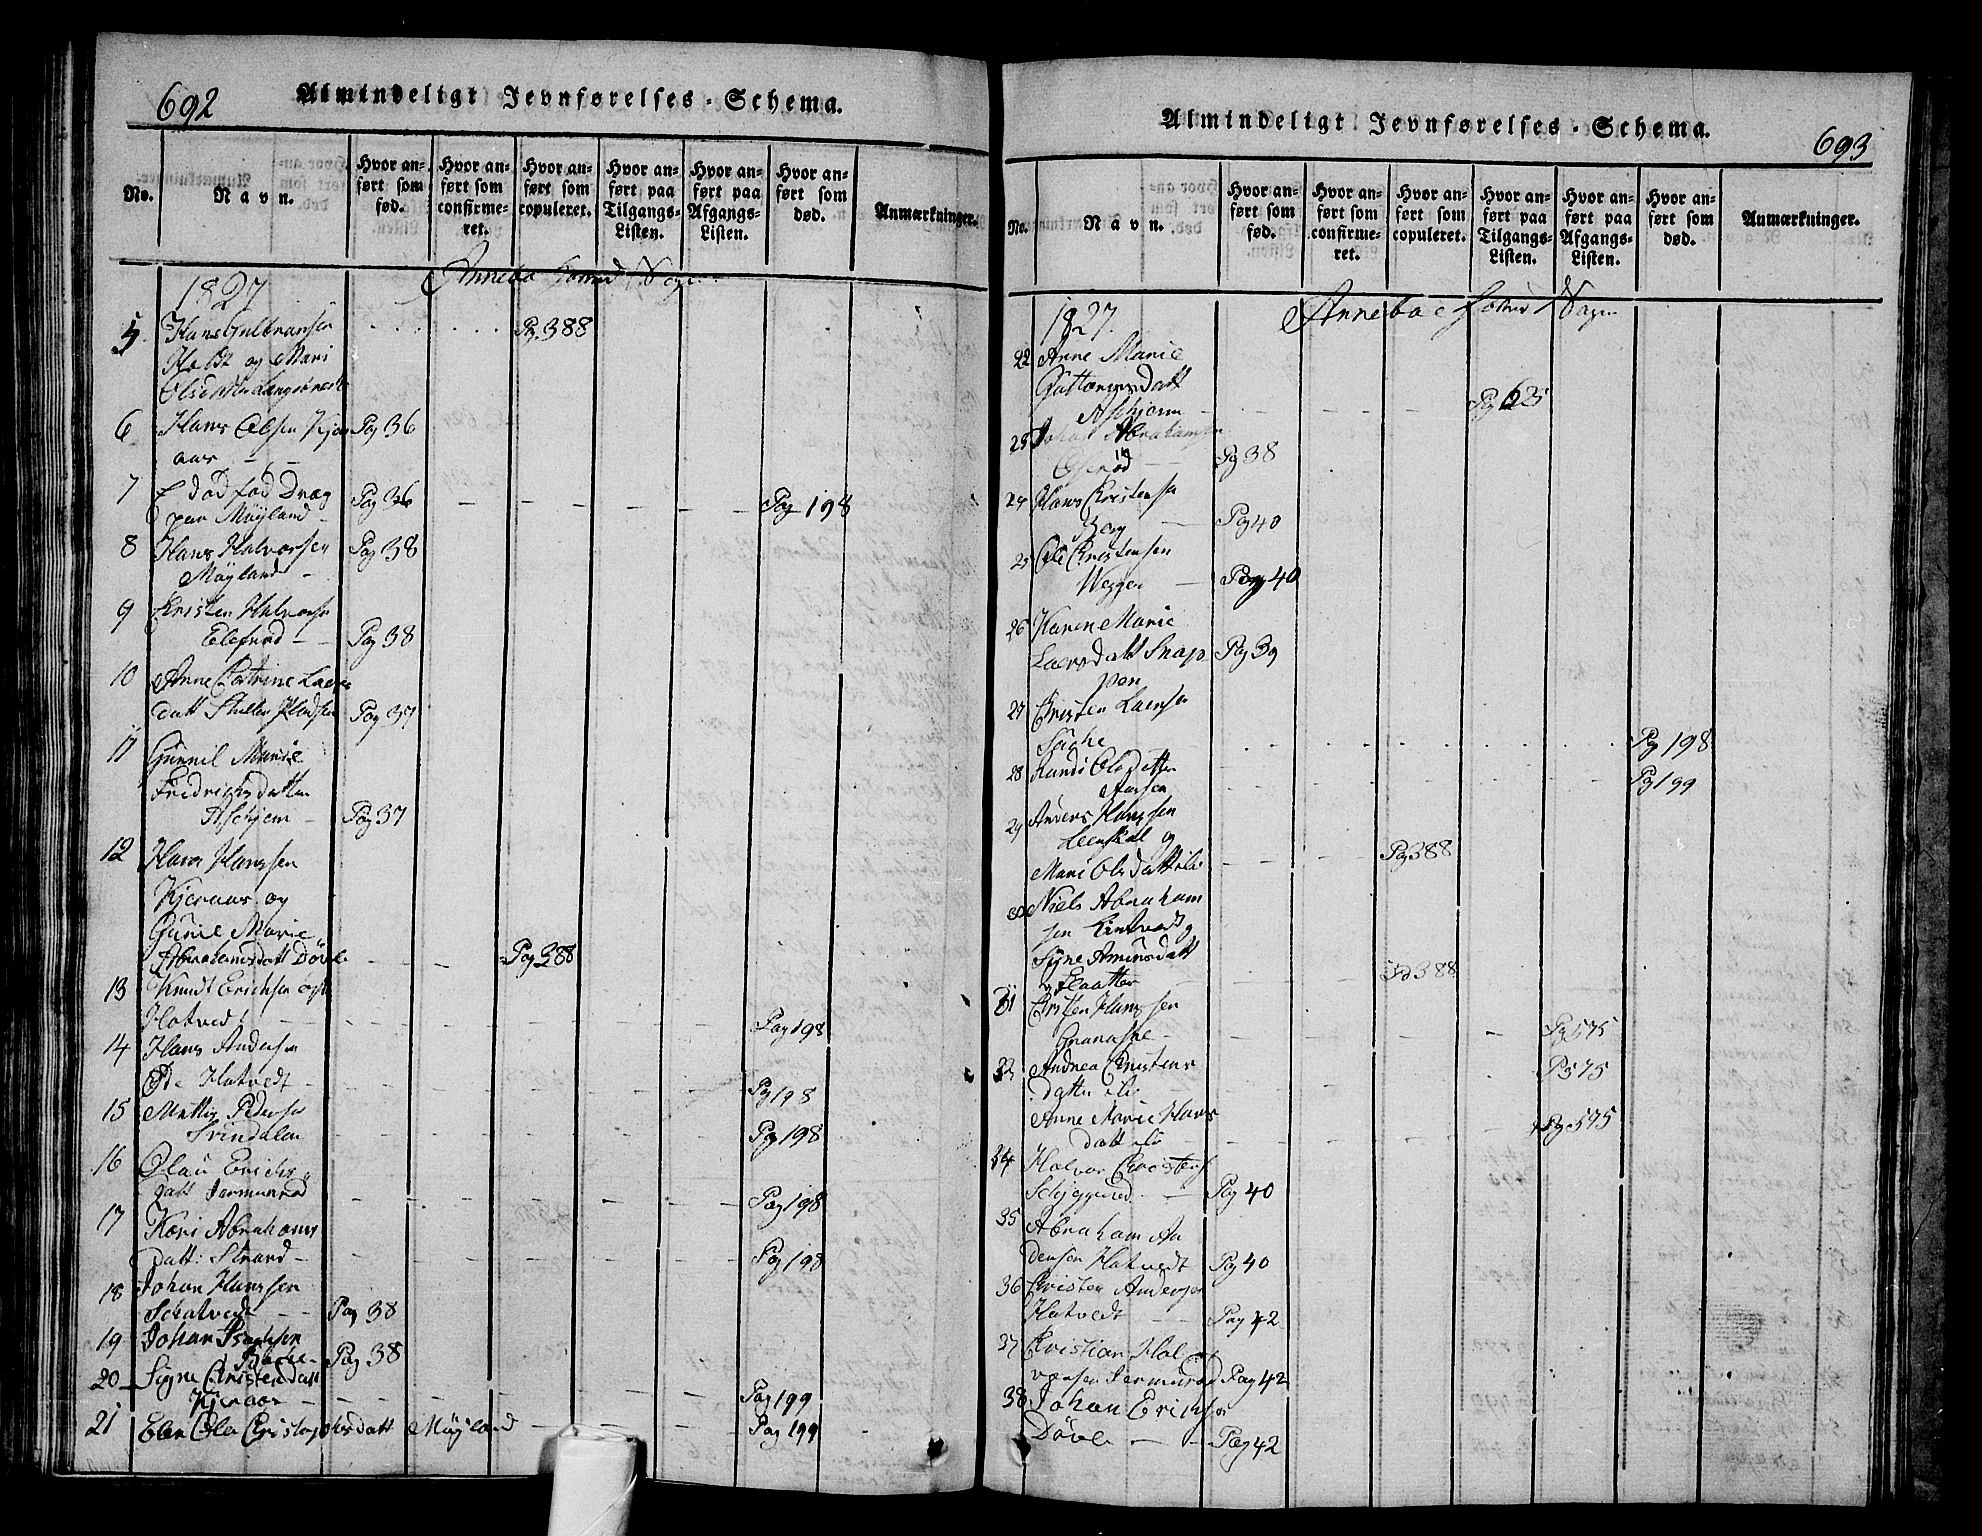 692
Almindeligt Jevnførelses-Schema.
No.
Navn.
Hvor anført som fød.
Hvor anført som confirmeret.
Hvor anført som copuleret.
Hvor anført paa Tilgangs-Listen.
Hvor anført paa Afgangs-Listen.
Hvor anført som død.
Anmærkninger.
1827 Annebo Sogn
5 Hans Gulbransen Pg. 388
Holdt og Mari
6 Hans Olsen Kjær Pag 36
aas
7 Dødfød Dreng Pag 36 Pag 198
Møyland
8 Hans Halvorsen Pag 38
Møyland
9 Christen Halvorsen
Pag 38
10 Anne Catrine Laers
datt Pladsen Pag 37
11 Gunnil Marie
Fredrichsdatter
Askjem Pag 37
12 Hans Hanssen
Kjeraas og
Gunil Marie
Abrahamsdatt Døvle Pag 388
13 Knudt Erichsen
Hotvedt Pag 198
14 Hans Andersen
Hotvedt Pag 198
15 Mattis Pedersen
Svindalen Pag 198
16 Olau Erichs
datt Jermundrød Pag 198
17 Kari Abrahams
datt: Strand Pag 198
18 Johan Hanssen
Schatvedt Pag 38
19 Johan Isachsen
Pag 38
20 Signe Christendatt
Kjeraas Pag 199
21 Elen Olea Christophersdatt Møyland Pag 199
Almindeligt Jevnførelses-Schema.
693
No.
Navn.
Hvor anført som fød.
Hvor anført som confirmeret.
Hvor anført som copuleret.
Hvor anført paa Tilgangs-Listen.
Hvor anført paa Afgangs-Listen.
Hvor anført som død.
Anmærkninger.
1827. Annebo Sogn
22 Anne Marie
Guttormsdatt
Askjem Pag 625
23 Johan Abrahamsen
Pag 38
24 Hans Christensen
Borg Pag 40
25 Ole Christensen
Wegger Pag 40
26 Karen Marie
Laersdatt Snap Pag 39
pen
27 Christen Laersen
Pg 198
28 Randi Olsdatter
Pg 199
29 Anders Hanssen
og
Mari Olsdatt Pag 388
30 Niels Abraham
sen
Signe Amunsdatt
Flaatten Pg 388
31 Christen Hanssen
Pg 575
32 Andrea Christens
datter P 575
Anne Marie Hans
datt Pg 575
34 Halvor Christens
Pag 40
35 Abraham An
dersen Hotvedt Pag 40
36 Christen Anders
Hotvedt Pag 42
37 Christian Hal
vorsen Jermundrød Pag 42
38 Johan Erichsen
Døvle Pag 42